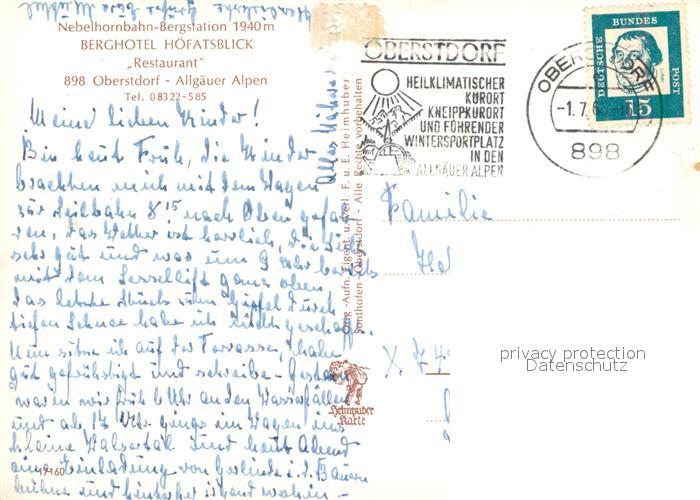 Nebelhornbahn-Bergstation 1940 m
BERGHOTEL HÖFATSBLICK
„Restaurant"
898 Oberstdorf - Allgäuer Alpen
Tel. 08322-585
Meine lieben Kinder!
Bin heut Früh, die Kinder
brachten mich mit dem Wagen
zur Seilbahn 8 15 nach Oben gefah-
ren, das Wetter ist herrlich, die
sehr gut und war um 9 Uhr bereits
mit dem Sessellift ganz oben
das letzte Stück zum Gipfel durch
tiefen Schnee habe ich nicht geschafft.
Nun sitze ich auf der Terrasse, habe
gut gefrühstückt und schreibe - Gestern
waren wir früh 6 Uhr an den Wasserfällen
und ab 14 Uhr gings im Wagen ins
kleine Walsertal und heut Abend
eine Einladung von Gerlinde i. d. Bauern
bühne und hinterher irgend wohin -
17160
Orig.-Aufn. Eigent. u. Verl. F. u. E. Heimhuber
Sonthofen-Oberstdorf - Alle Rechte vorbehalten
Heimhuber
Karte
OBERSTDORF
HEILKLIMATISCHER
KURORT
KNEIPPKURORT
UND FÜHRENDER
WINTERSPORTPLATZ
IN DEN
ALLGÄUER ALPEN
OBERSTDORF
-1.7.6
898
DEUTSCHE
BUNDES
POST
15
Familie
privacy protection
Datenschutz